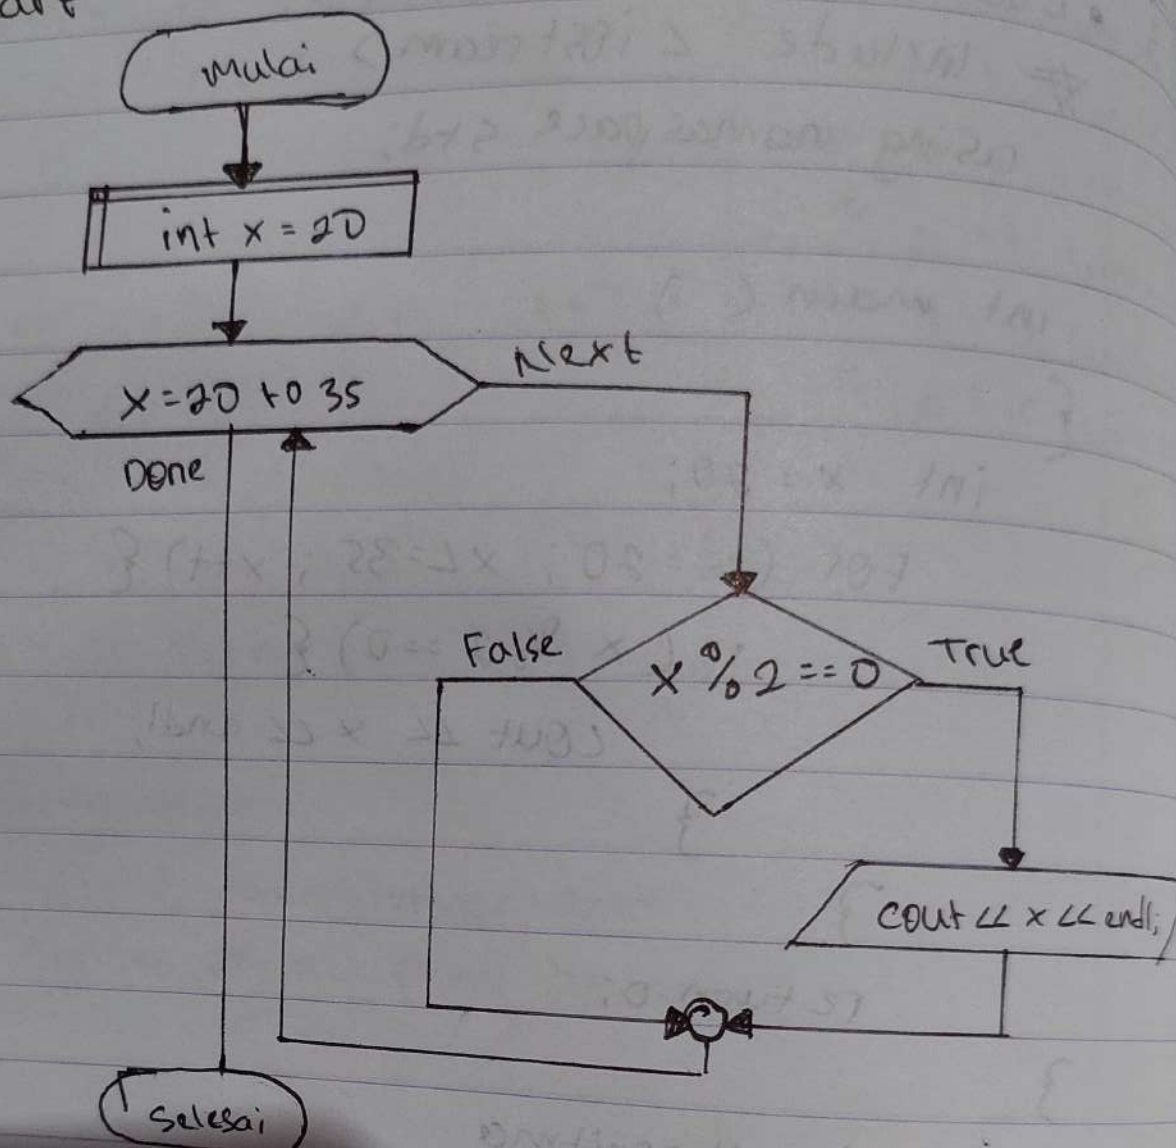 mulai
int x = 20
x = 20 to 35
Next
Done
False
x % 2 == 0
True
cout << x << endl;
Selesai